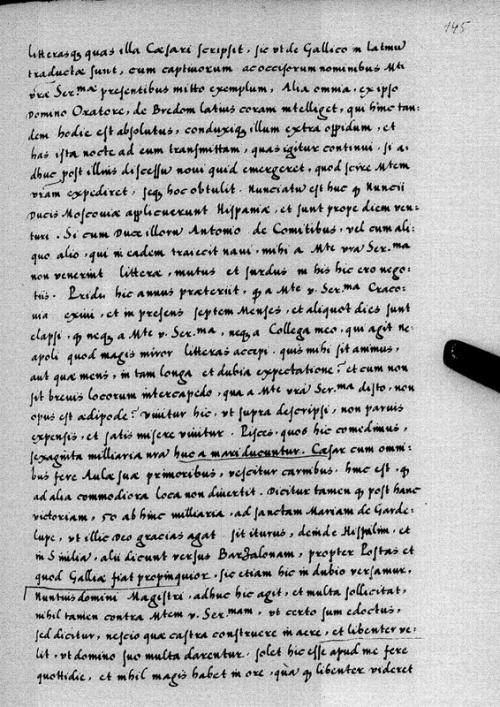 145
litterasq; quas illa Cæsari scripsit, sic vt de Gallico in latinu
traductæ sunt, cum captiuorum ac occisorum nominibus Mti
vræ Ser.mæ presentibus mitto exemplum, Alia omnia, ex ipso
Domino Oratore, de Bredom latius coram intelliget, qui hinc tan:
dem hodie est absolutus, conduxiq; illum extra oppidum, et
has ista nocte ad eum transmittam, quas igitur continui, si a:
dhuc post illius discessu noui quid emergeret, quod scire Mtem
vram expediret, seq; hoc obtulit. Nunciatu est huc q Nuncii
Ducis Moscouiæ applicuerunt Hispaniæ, et sunt prope diem ven:
turi. Si cum Duce illoru Antonio de Comitibus, vel cum ali:
quo alio, qui in eadem traiecit naui, mihi a Mte vra Ser.ma
non venerint litteræ, mutus et surdus in his hic ero nego:
tiis. Pridu hic annus præteriit, q a Mte v. Ser.ma Craco:
uia exiui, et in presens septem Menses, et aliquot dies sunt
elapsi, q neq; a Mte v. Ser.ma, neq; a Collega meo, qui agit ne:
apoli quod magis miror litteras accepi. quis mihi sit animus,
aut quæ mens, in tam longa et dubia expectatione? et cum non
sit breuis locorum intercapedo, qua a Mte vra Ser.ma disto, non
opus est ædipode? viuitur hic, vt supra descripsi, non paruis
expensis, et satis misere viuitur. Pisces, quos hic comedimus,
sexaginta milliaria nra huc a mari ducuntur. Cæsar cum omni:
bus fere Aulæ suæ primoribus, vescitur carnibus. hinc est, q
ad alia commodiora loca non diuertit. Dicitur tamen q post hanc
victoriam, 50 ab hinc milliaria, ad sanctam Mariam de Garde:
lupe, vt illic Deo gracias agat sit iturus, deinde Hispalim, et
in Siuilia, alii dicunt versus Barzalonam, propter Postas et
quod Galliæ fiat propinquior. sic etiam hic in dubio versamur,
Nuntius domini Magistri, adhuc hic agit, et multa sollicitat,
nihil tamen contra Mtem v. Ser.mam, vt certo sum edoctus,
sed dicitur, nescio quæ castra construere in aere, et libenter ve:
lit, vt domino suo multa darentur. solet hic esse apud me fere
quottidie, et nihil magis habet in ore, qua q libenter videret